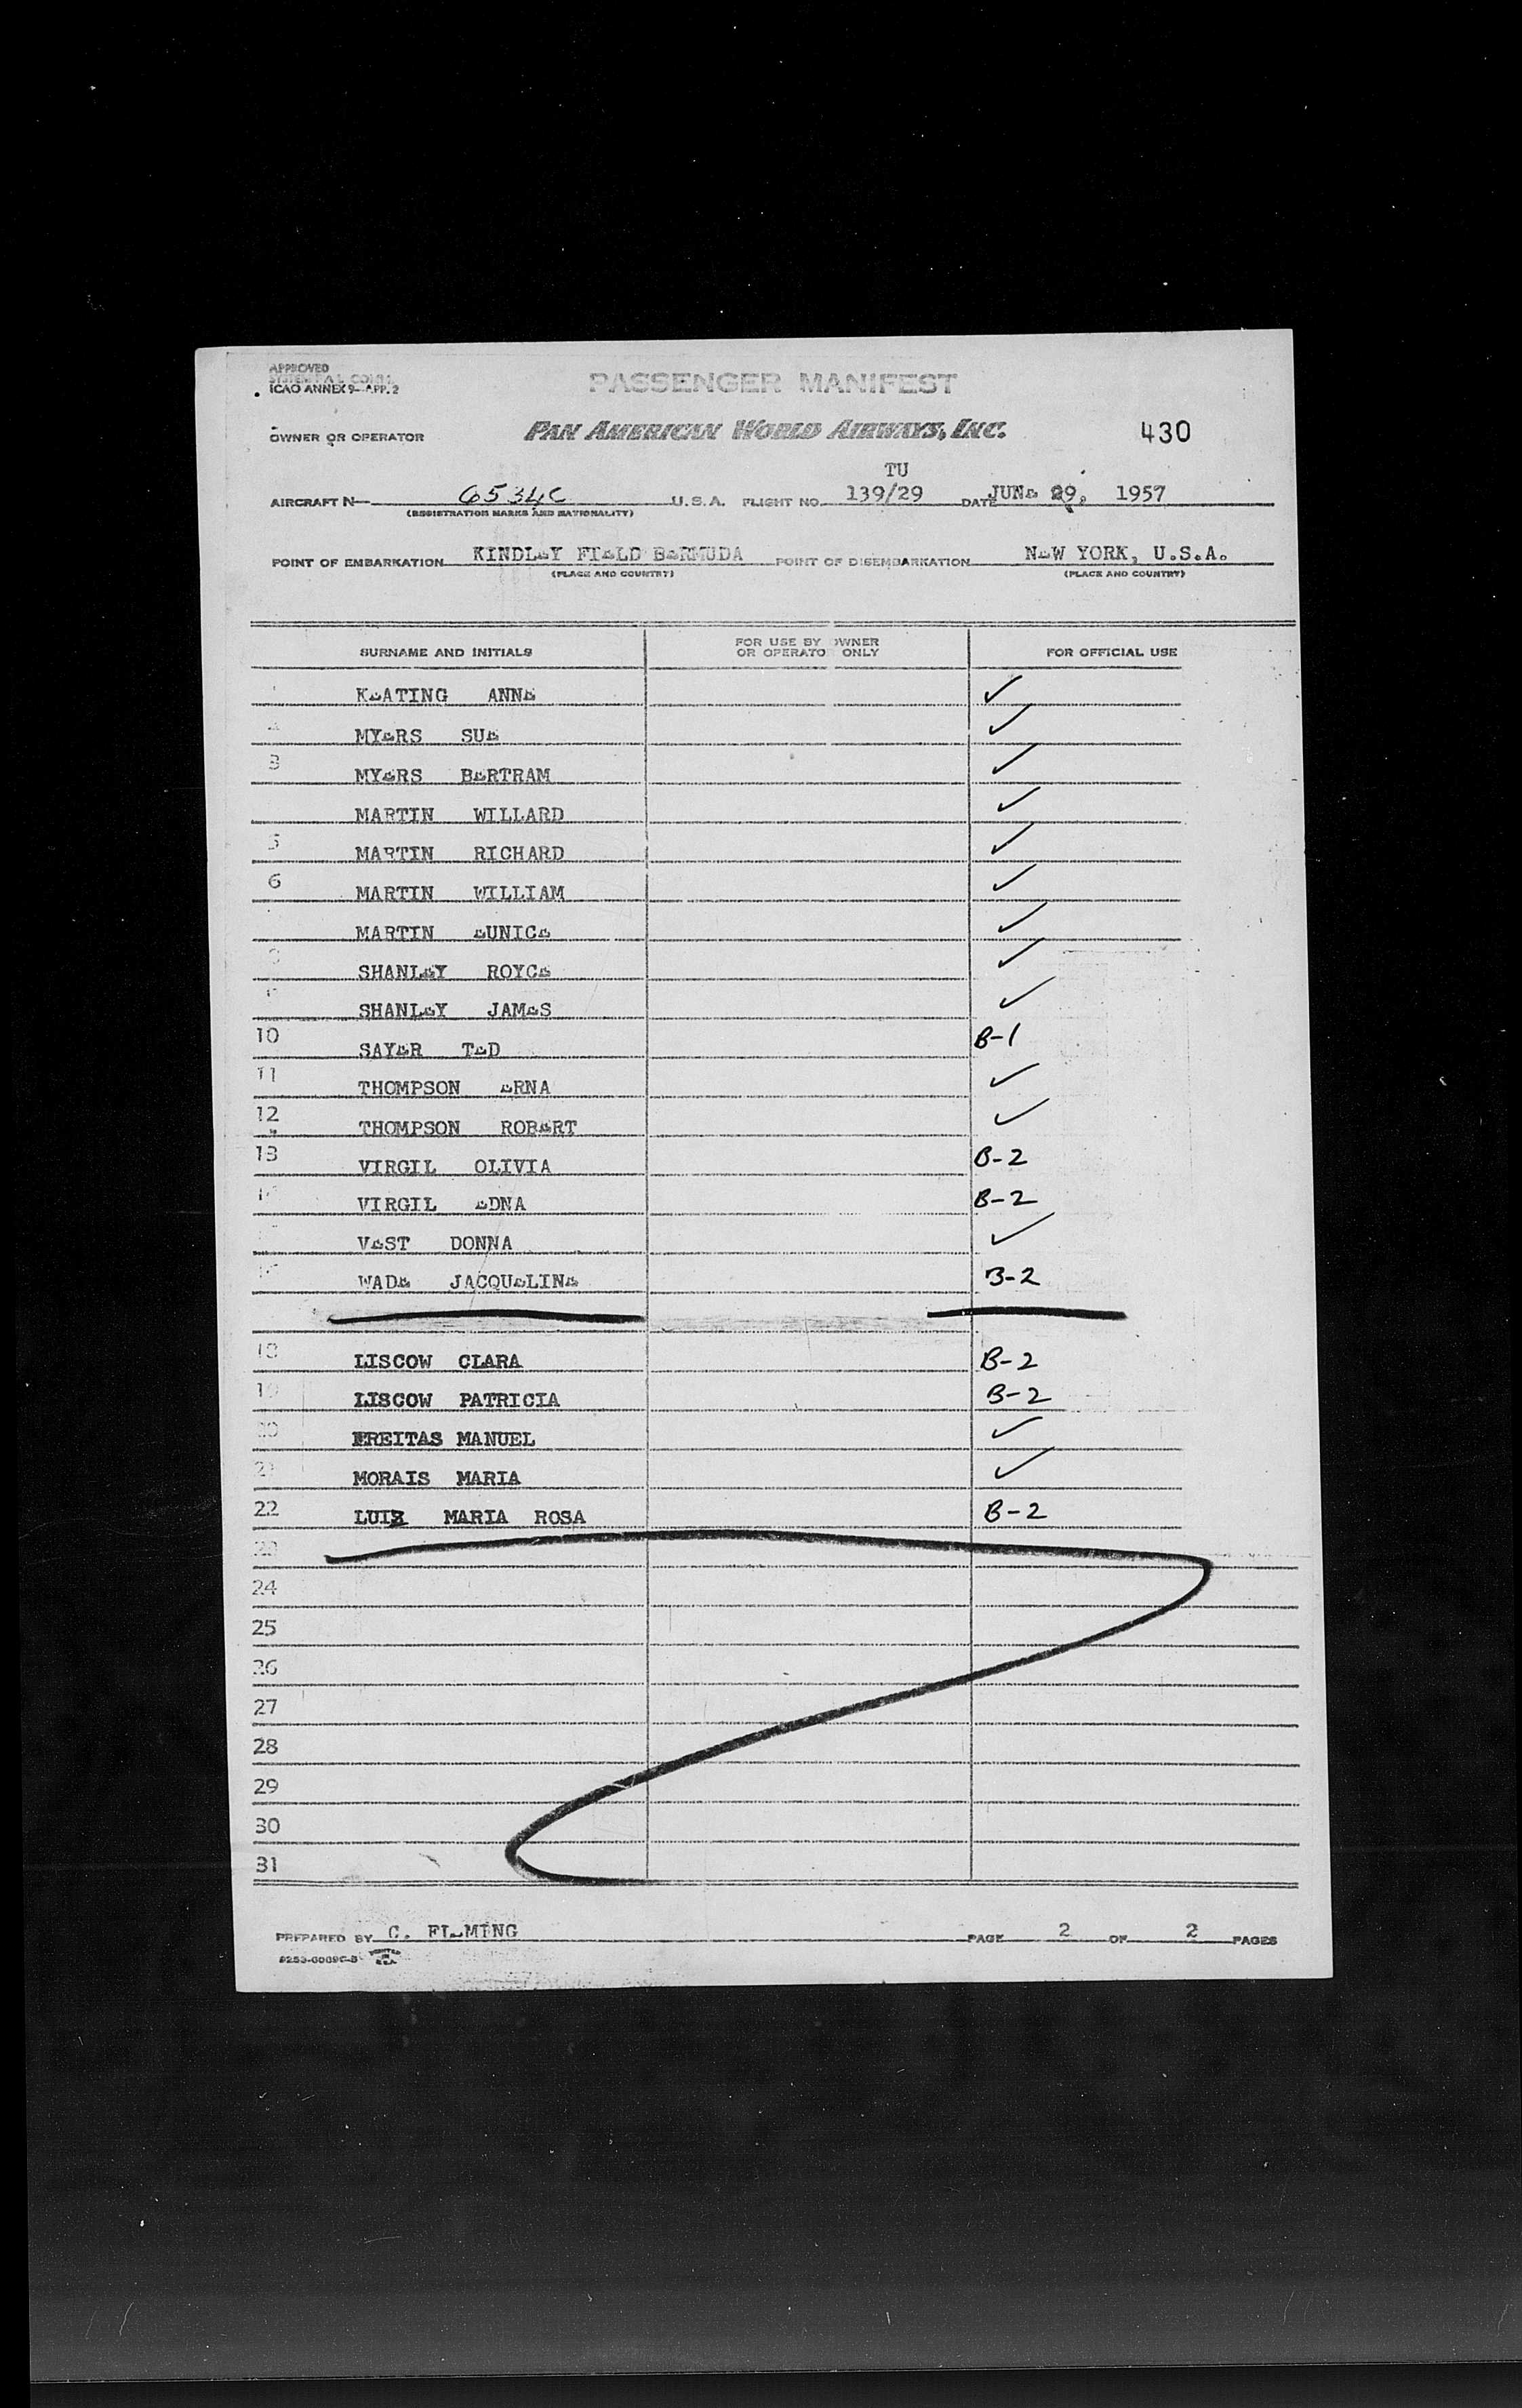 APPROVED
ICAO ANNEX 9-APP. 2
PASSENGER MANIFEST
OWNER OR OPERATOR PAN AMERICAN WORLD AIRWAYS, INC. 430
TU
AIRCRAFT N 6534C U.S.A. FLIGHT NO. 139/29 DATE JUNE 29, 1957
(REGISTRATION MARKS AND NATIONALITY)
POINT OF EMBARKATION KINDLEY FIELD BERMUDA POINT OF DISEMBARKATION NEW YORK, U.S.A.
(PLACE AND COUNTRY) (PLACE AND COUNTRY)
SURNAME AND INITIALS FOR USE BY OWNER OR OPERATOR ONLY FOR OFFICIAL USE
KEATING ANNE ✓
MYERS SUE ✓
3 MYERS BERTRAM ✓
MARTIN WILLARD ✓
5 MARTIN RICHARD ✓
6 MARTIN WILLIAM ✓
MARTIN EUNICE ✓
SHANLEY ROYCE ✓
SHANLEY JAMES ✓
10 SAYER TED B-1
11 THOMPSON ERNA ✓
12 THOMPSON ROBERT ✓
13 VIRGIL OLIVIA B-2
VIRGIL EDNA B-2
VEST DONNA ✓
WADE JACQUELINE B-2
18 LISCOW CLARA B-2
19 LISCOW PATRICIA B-2
20 FREITAS MANUEL ✓
21 MORAIS MARIA ✓
22 LUIZ MARIA ROSA B-2
23
24
25
26
27
28
29
30
31
PREPARED BY C. FLEMING PAGE 2 OF 2 PAGES